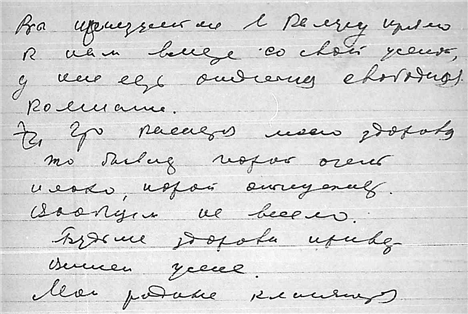 Вы приедете в Калугу прямо
к нам вместе со своей женой,
у нас есть отдельная свободная
комната.
Что касается моего здоровья
то бывает порой очень
плохо, порой отпускает.
Вообщем не весело.
Будьте здоровы привет
Вашей жене.
Мои родные кланяются